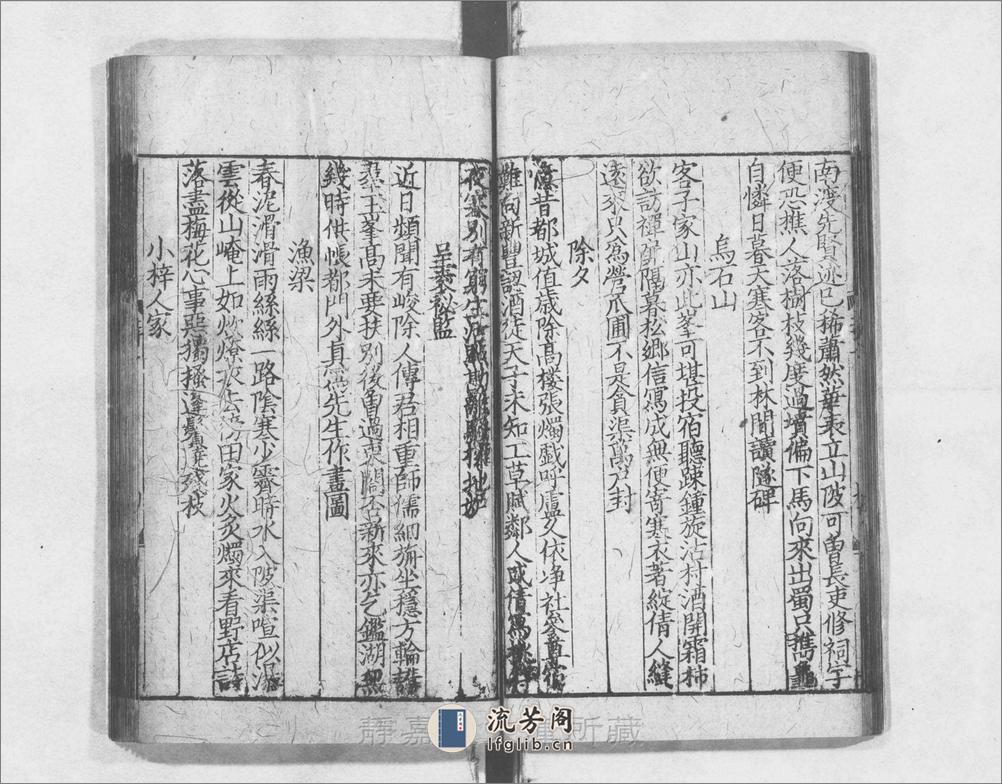 南渡先賢迹已稀蕭然華表立山陂可曽長吏修祠宇
便恐樵人落樹枝幾度過墳偏下馬向來出蜀只攜龜
自憐日暮天寒客不到林間讀隧碑
烏石山
客子家山亦此峯可堪投宿聽踈鍾旋沽村酒開霜柿
欲訪禪師隔暮松鄉信寫成無便寄寒衣著綻倩人縫
遠來只爲營瓜圃不是貪渠萬户封
除夕
憶昔都城值歲除高樓張燭戲呼盧久依净社參尊宿
難向新豐認酒徒天子未知工草賦鄰人或倩寫桃符
夜寒別有窮生活
呈袁秘監
近日頻聞有峻除人傳君相重師儒細旃坐穩方輪講
羣玉峯髙未要扶別後曽過東閣否新來亦乞鑑湖無
幾時供帳都門外真爲先生作畫圖
漁梁
春泥滑滑雨絲絲一路陰寒少霽時水入陂渠喧似瀑
雲從山崦上如炊燎衣去傍田家火炙燭來看野店詩
落盡梅花心事惡獨搔蓬鬢遶殘枝
小梓人家
靜嘉 所藏
流芳阁
lfglib.cn